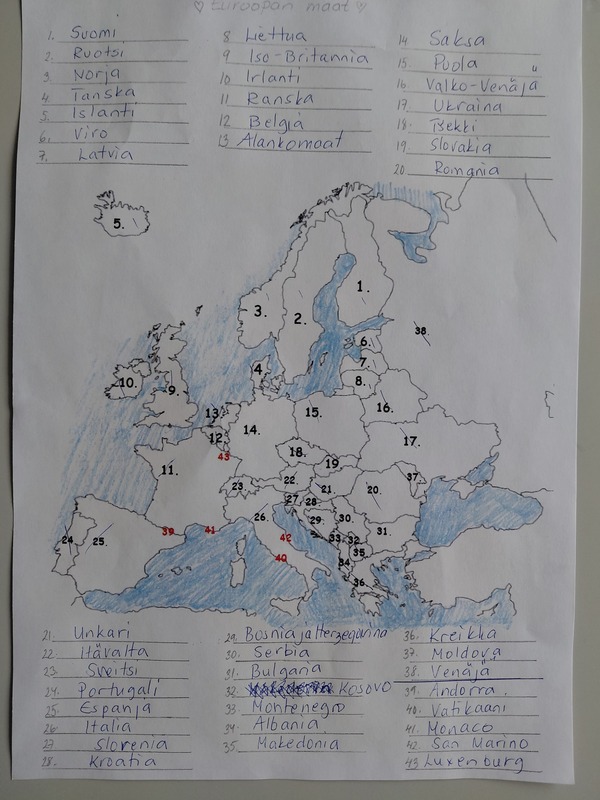 ♡ Euroopan maat ♡
1. Suomi
2. Ruotsi
3. Norja
4. Tanska
5. Islanti
6. Viro
7. Latvia
8 Liettua
9 Iso-Britannia
10 Irlanti
11 Ranska
12 Belgia
13 Alankomaat
14 Saksa
15 Puola
16 Valko-Venäjä
17. Ukraina
18. Tsekki
19. Slovakia
20 Romania
5.
1.
3.
2.
38.
6.
7.
4.
8.
10.
9.
16.
13.
15.
12.
14.
17.
43
18.
19.
11.
22.
37.
23.
21.
20.
27.
28.
26.
29.
30.
39
41
31.
24.
25.
42
33.
32.
35.
40
34.
36.
21. Unkari
22. Itävalta
23. Sveitsi
24. Portugali
25. Espanja
26. Italia
27 Slovenia
28. Kroatia
29. Bosnia ja Herzegovina
30. Serbia
31. Bulgaria
32 Kosovo
33. Montenegro
34. Albania
35. Makedonia
36. Kreikka
37. Moldova
38. Venäjä
39. Andorra
40. Vatikaani
41. Monaco
42. San Marino
43 Luxemburg